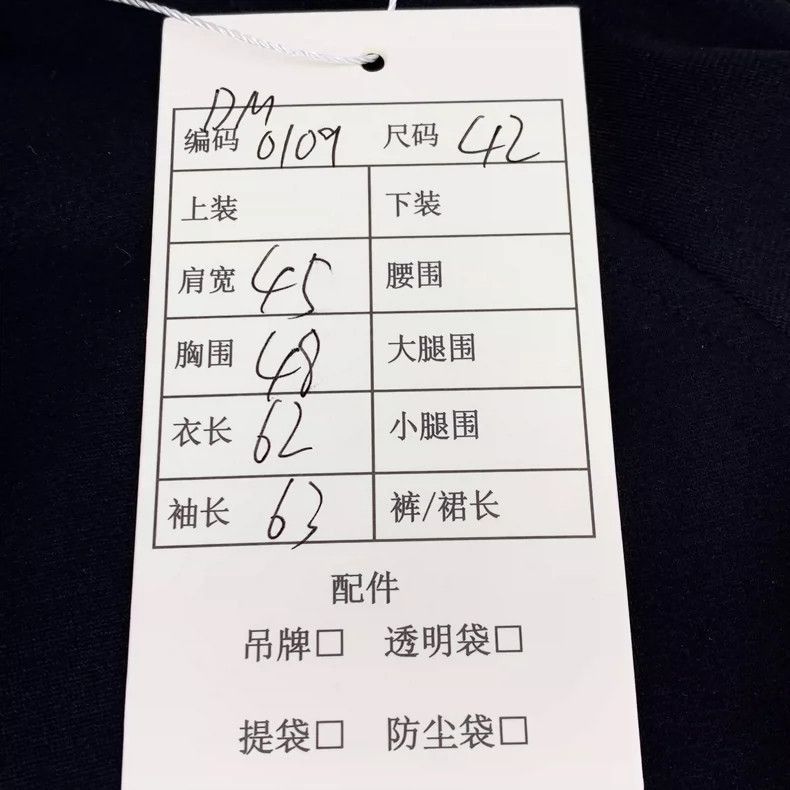 DM
编码 0109 尺码 42
上装 下装
肩宽 45 腰围
胸围 48 大腿围
衣长 62 小腿围
袖长 63 裤/裙长
配件
吊牌□ 透明袋□
提袋□ 防尘袋□